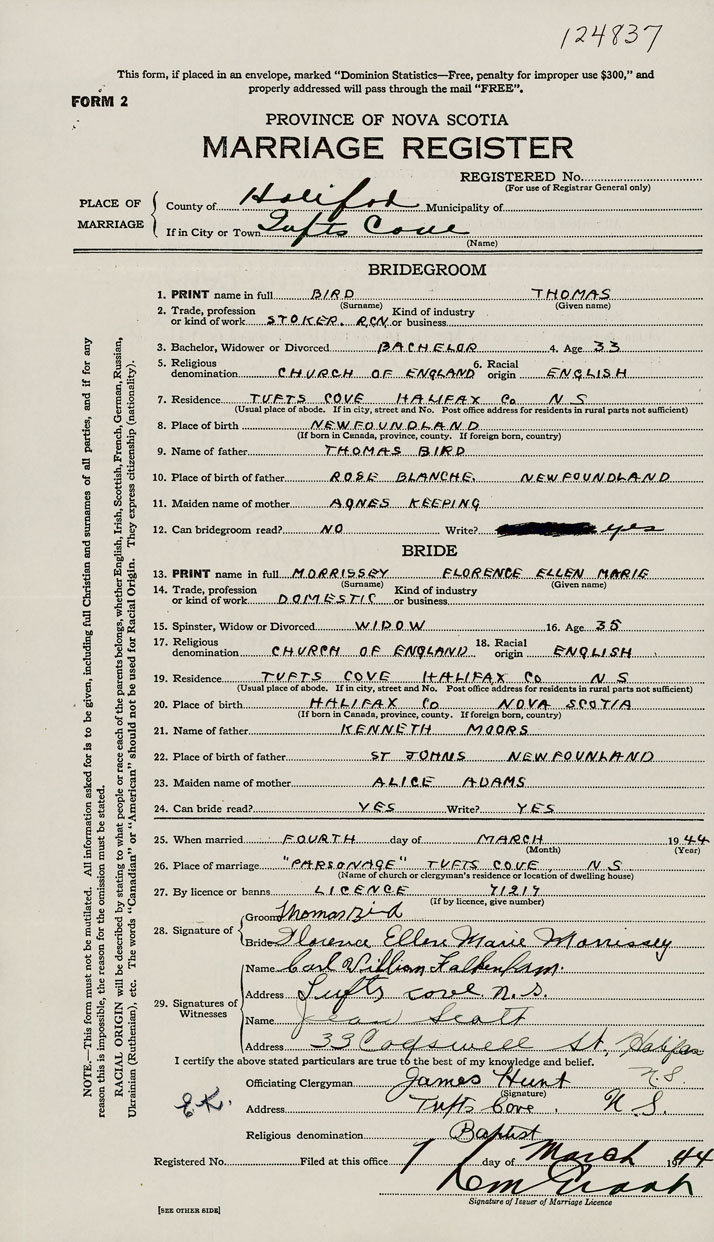 124837
This form, if placed in an envelope, marked "Dominion Statistics—Free, penalty for improper use $300," and
properly addressed will pass through the mail "FREE".
FORM 2
PROVINCE OF NOVA SCOTIA
MARRIAGE REGISTER
REGISTERED No.
(For use of Registrar General only)
PLACE OF MARRIAGE
County of Halifax Municipality of
If in City or Town Tufts Cove
(Name)
BRIDEGROOM
1. PRINT name in full BIRD THOMAS
(Surname) (Given name)
2. Trade, profession or kind of work STOKER. RCN Kind of industry or business
3. Bachelor, Widower or Divorced BACHELOR 4. Age 33
5. Religious denomination CHURCH OF ENGLAND 6. Racial origin ENGLISH
7. Residence TUFTS COVE HALIFAX Co N S
(Usual place of abode. If in city, street and No. Post office address for residents in rural parts not sufficient)
8. Place of birth NEWFOUNDLAND
(If born in Canada, province, county. If foreign born, country)
9. Name of father THOMAS BIRD
10. Place of birth of father ROSE BLANCHE, NEWFOUNDLAND
11. Maiden name of mother AGNES KEEPING
12. Can bridegroom read? NO Write? yes
BRIDE
13. PRINT name in full MORRISSEY FLORENCE ELLEN MARIE
(Surname) (Given name)
14. Trade, profession or kind of work DOMESTIC Kind of industry or business
15. Spinster, Widow or Divorced WIDOW 16. Age 35
17. Religious denomination CHURCH OF ENGLAND 18. Racial origin ENGLISH
19. Residence TUFTS COVE HALIFAX Co N S
(Usual place of abode. If in city, street and No. Post office address for residents in rural parts not sufficient)
20. Place of birth HALIFAX Co NOVA SCOTIA
(If born in Canada, province, county. If foreign born, country)
21. Name of father KENNETH MOORS
22. Place of birth of father ST JOHNS NEWFOUNLAND
23. Maiden name of mother ALICE ADAMS
24. Can bride read? YES Write? YES
25. When married FOURTH day of MARCH 1944
(Month) (Year)
26. Place of marriage "PARSONAGE" TUFTS COVE N S
(Name of church or clergyman's residence or location of dwelling house)
27. By licence or banns LICENCE 71217
(If by licence, give number)
28. Signature of
Groom Thomas Bird
Bride Florence Ellen Marie Morrissey
29. Signatures of Witnesses
Name Carl William Falkenham.
Address Tufts cove n.s.
Name Jean Scott
Address 33 Cogswell St, Halifax
N.S.
I certify the above stated particulars are true to the best of my knowledge and belief.
Officiating Clergyman James Hunt
(Signature)
Address Tufts Cove, N.S.
E.K.
Religious denomination Baptist
Registered No. Filed at this office 7 day of March 1944
Signature of Issuer of Marriage Licence
[SEE OTHER SIDE]
NOTE.—This form must not be mutilated. All information asked for is to be given, including full Christian and surnames of all parties, and if for any
reason this is impossible, the reason for the omission must be stated.
RACIAL ORIGIN will be described by stating to what people or race each of the parents belongs, whether English, Irish, Scottish, French, German, Russian,
Ukrainian (Ruthenian), etc. The words "Canadian" or "American" should not be used for Racial Origin. They express citizenship (nationality).